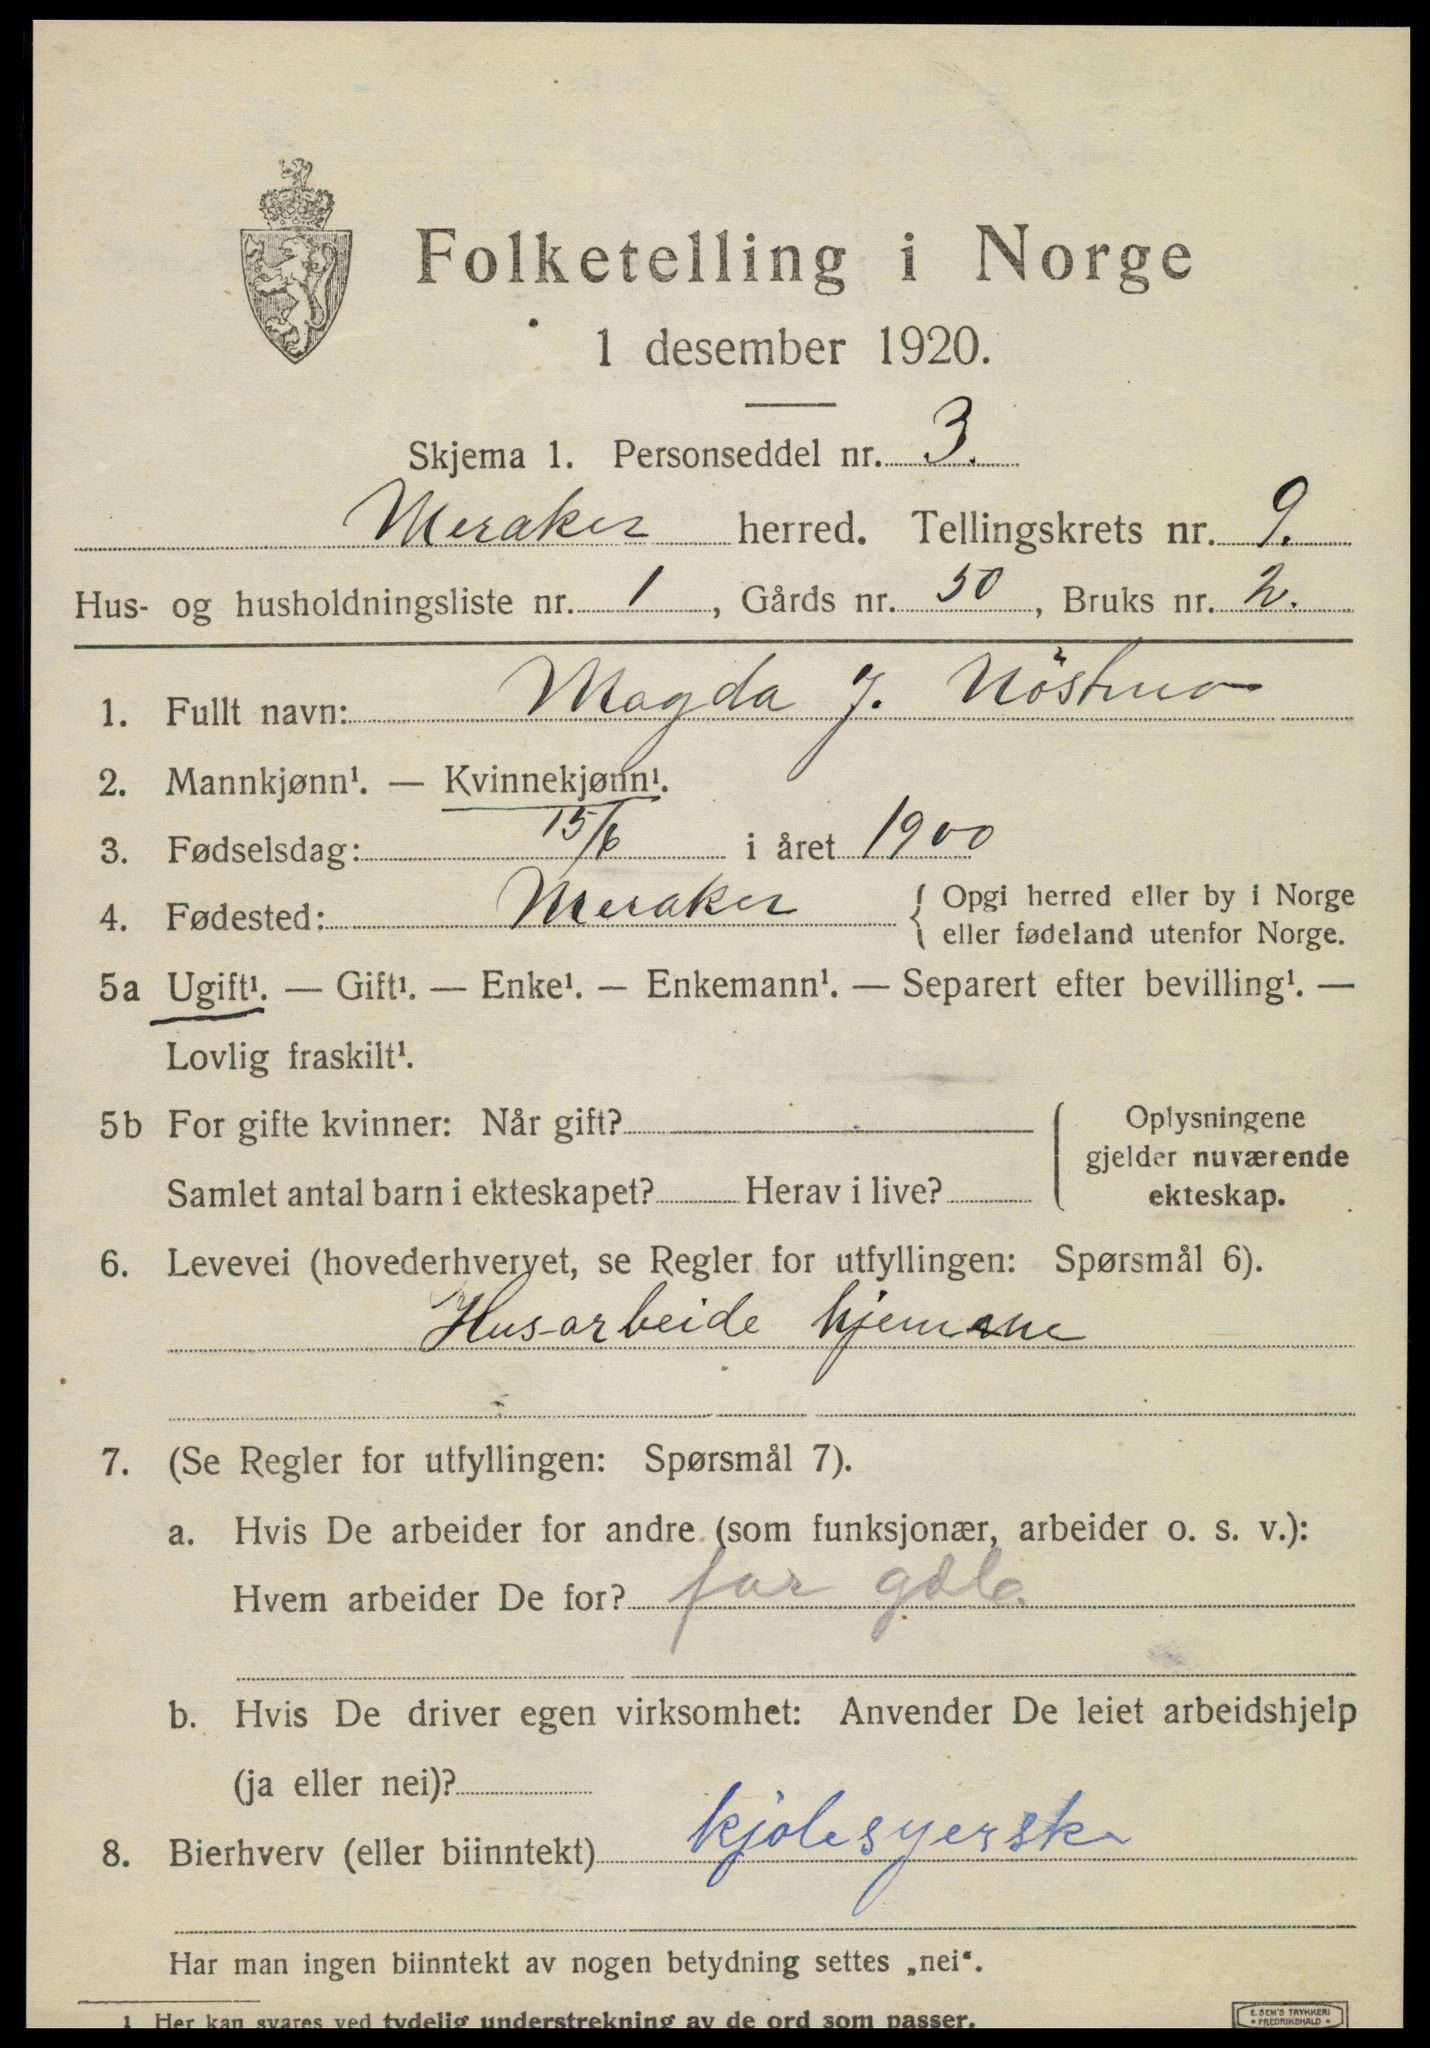 Folketelling i Norge
1 desember 1920.
Skjema 1. Personseddel nr. 3.
Meraker herred. Tellingskrets nr. 9.
Hus- og husholdningsliste nr. 1, Gårds nr. 50, Bruks nr. 2.
1. Fullt navn: Magda J.
2. Mannkjønn¹. — Kvinnekjønn¹.
3. Fødselsdag: 15/6 i året 1900
4. Fødested: Meraker { Opgi herred eller by i Norge
eller fødeland utenfor Norge.
5a Ugift¹. — Gift¹. — Enke¹. — Enkemann¹. — Separert efter bevilling¹. —
Lovlig fraskilt¹.
5b For gifte kvinner: Når gift?
Samlet antal barn i ekteskapet? Herav i live?
Oplysningene
gjelder nuværende
ekteskap.
6. Levevei (hovederhvervet, se Regler for utfyllingen: Spørsmål 6).
Husarbeide hjemme
7. (Se Regler for utfyllingen: Spørsmål 7).
a. Hvis De arbeider for andre (som funksjonær, arbeider o. s. v.):
Hvem arbeider De for? far
b. Hvis De driver egen virksomhet: Anvender De leiet arbeidshjelp
(ja eller nei)?
8. Bierhverv (eller biinntekt) kjolesyerske
Har man ingen biinntekt av nogen betydning settes „nei“.
1 Her kan svares ved tydelig understrekning av de ord som passer.
E. SEM'S TRYKKERI
* FREDRIKSHALD *